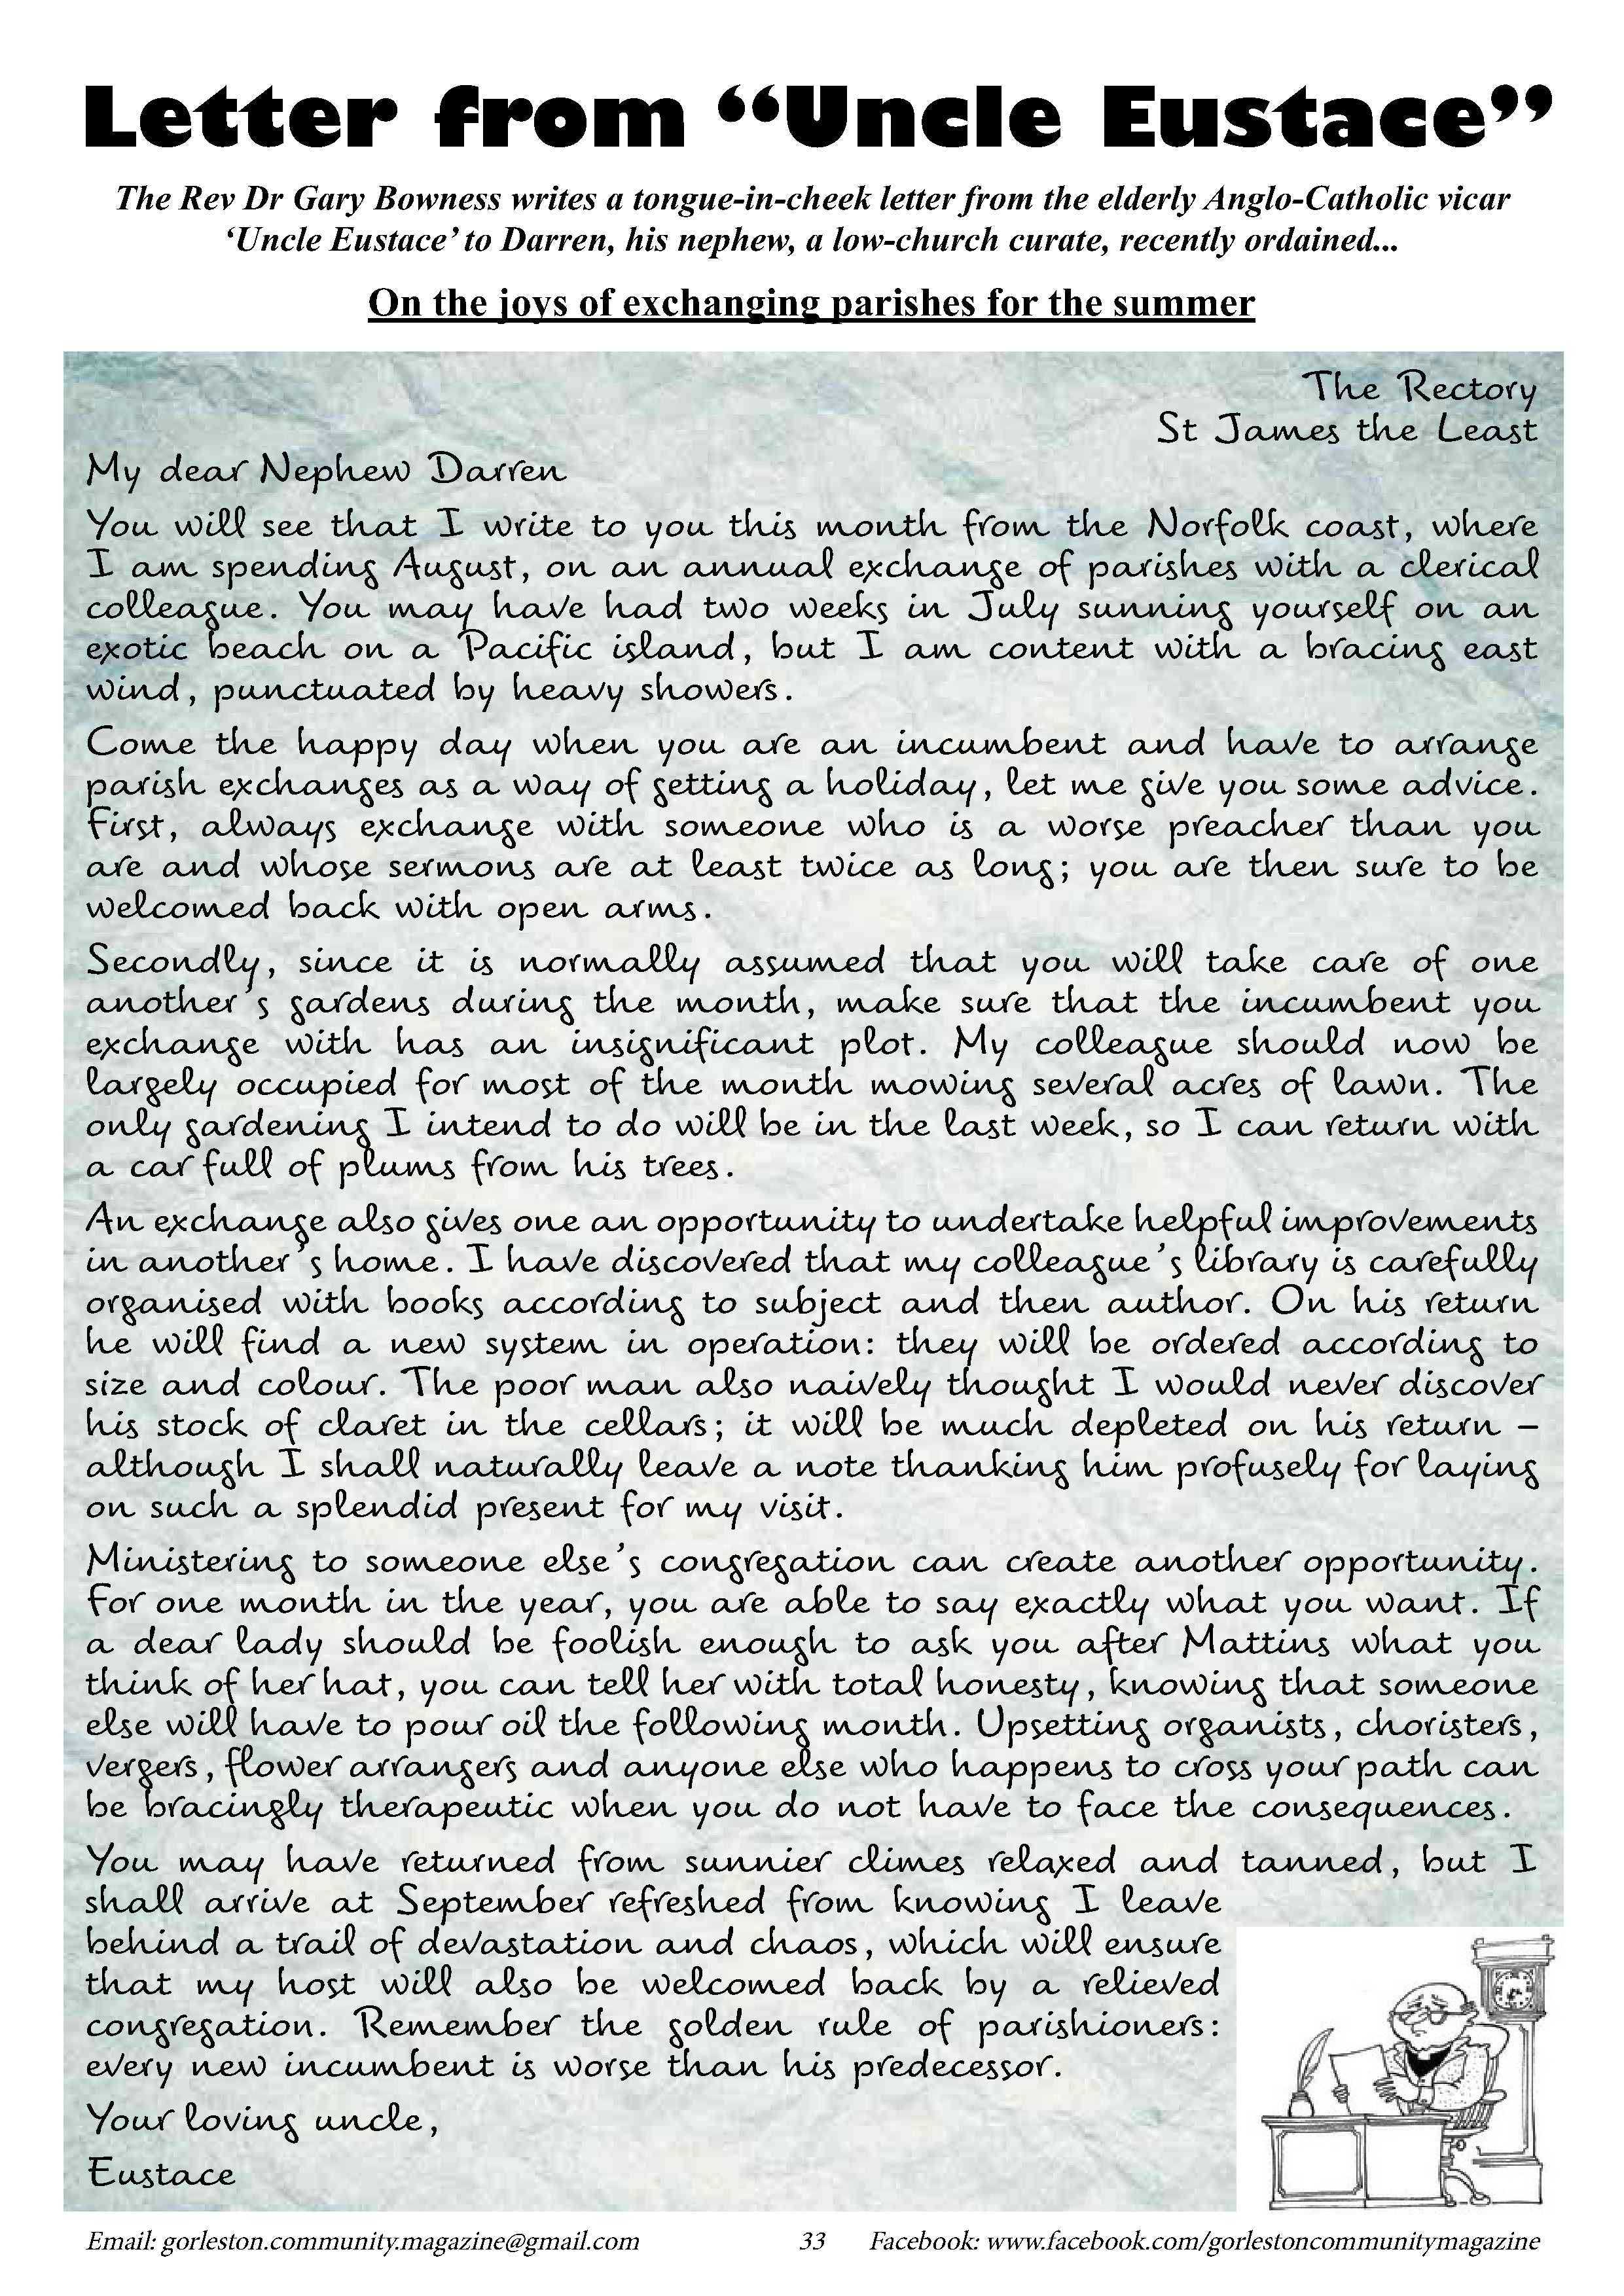 Letter from “Uncle Eustace”
The Rev Dr Gary Bowness writes a tongue-in-cheek letter from the elderly Anglo-Catholic vicar
‘Uncle Eustace’ to Darren, his nephew, a low-church curate, recently ordained...
On the joys of exchanging parishes for the summer
The Rectory
St James the Least
My dear Nephew Darren
You will see that I write to you this month from the Norfolk coast, where
I am spending August, on an annual exchange of parishes with a clerical
colleague. You may have had two weeks in July sunning yourself on an
exotic beach on a Pacific island, but I am content with a bracing east
wind, punctuated by heavy showers.
Come the happy day when you are an incumbent and have to arrange
parish exchanges as a way of getting a holiday, let me give you some advice.
First, always exchange with someone who is a worse preacher than you
are and whose sermons are at least twice as long; you are then sure to be
welcomed back with open arms.
Secondly, since it is normally assumed that you will take care of one
another's gardens during the month, make sure that the incumbent you
exchange with has an insignificant plot. My colleague should now be
largely occupied for most of the month mowing several acres of lawn. The
only gardening I intend to do will be in the last week, so I can return with
a car full of plums from his trees.
An exchange also gives one an opportunity to undertake helpful improvements
in another's home. I have discovered that my colleague's library is carefully
organised with books according to subject and then author. On his return
he will find a new system in operation: they will be ordered according to
size and colour. The poor man also naively thought I would never discover
his stock of claret in the cellars; it will be much depleted on his return –
although I shall naturally leave a note thanking him profusely for laying
on such a splendid present for my visit.
Ministering to someone else's congregation can create another opportunity.
For one month in the year, you are able to say exactly what you want. If
a dear lady should be foolish enough to ask you after Mattins what you
think of her hat, you can tell her with total honesty, knowing that someone
else will have to pour oil the following month. Upsetting organists, choristers,
vergers, flower arrangers and anyone else who happens to cross your path can
be bracingly therapeutic when you do not have to face the consequences.
You may have returned from sunnier climes relaxed and tanned, but I
shall arrive at September refreshed from knowing I leave
behind a trail of devastation and chaos, which will ensure
that my host will also be welcomed back by a relieved
congregation. Remember the golden rule of parishioners:
every new incumbent is worse than his predecessor.
Your loving uncle,
Eustace
Email: gorleston.community.magazine@gmail.com 33 Facebook: www.facebook.com/gorlestoncommunitymagazine